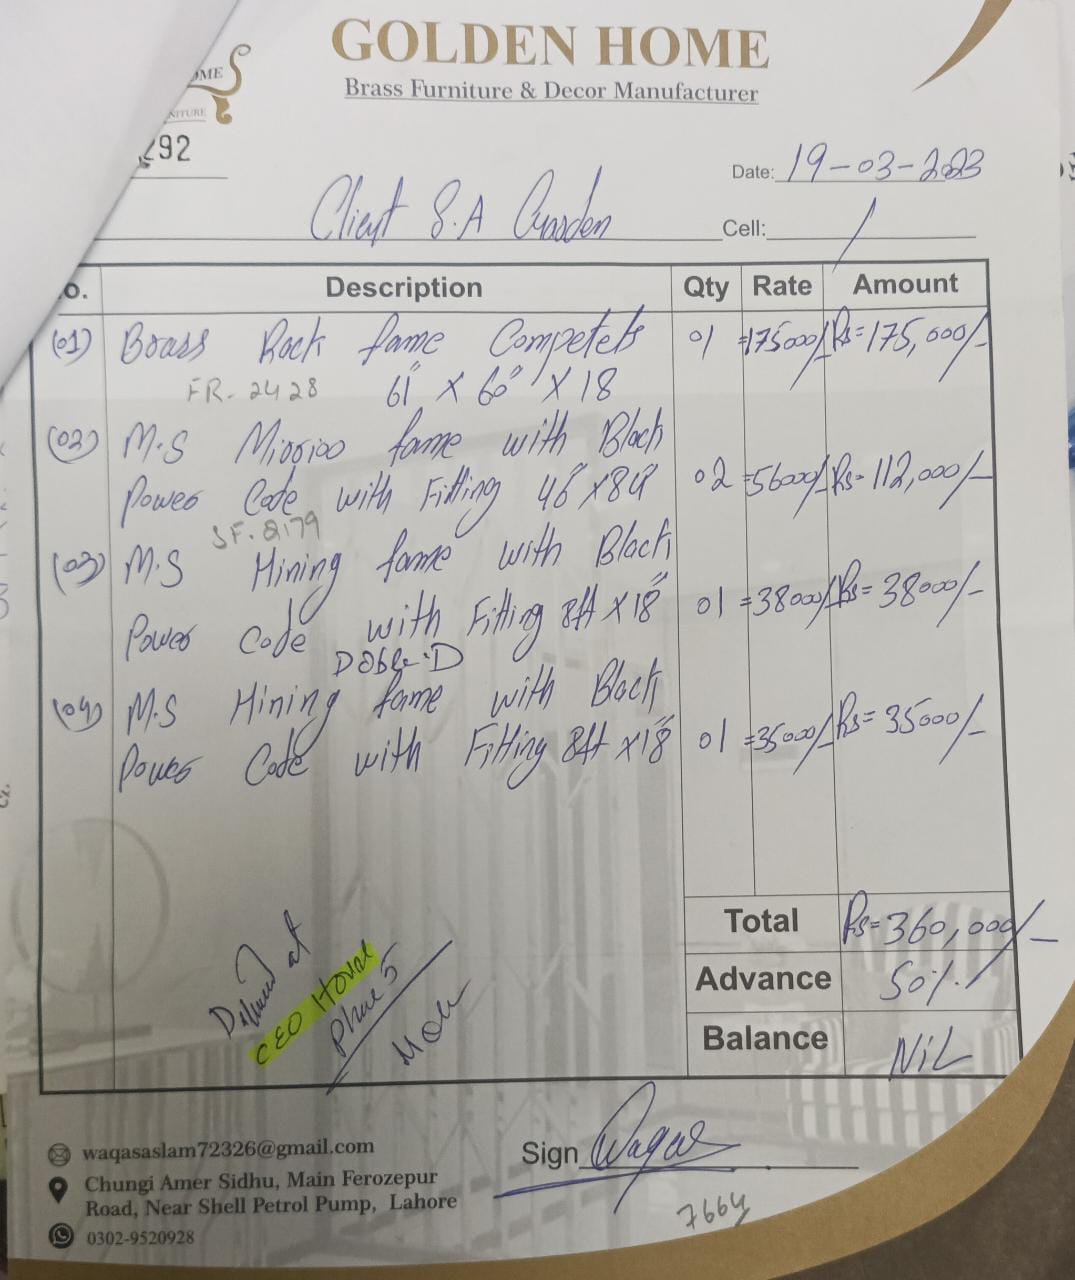 GOLDEN HOME
Brass Furniture & Decor Manufacturer
OME
NITURE
292
Date: 19-03-2023
Client S.A Garden
Cell: /
o. Description Qty Rate Amount
(01) Brass Rack fame Competets 01 =175000/- Rs=175,000/-
FR-2428 61" X 60" X 18
(02) M.S Mirroroo fame with Black
Power Code with Fitting 48"X84" 02 =56000/- Rs=112,000/-
SF-8179
(03) M.S Hining fame with Black
Power Code with Fitting 8ft X 18" 01 =38000/- Rs=38000/-
Doble.D
(04) M.S Hining fame with Black
Power Code with Fitting 8ft X 18" 01 =35000/- Rs=35000/-
Total Rs=360,000/-
Advance 50%.
Balance NiL
at
CEO House
Phase 5
Sign Waqas
waqasaslam72326@gmail.com
Chungi Amer Sidhu, Main Ferozepur
Road, Near Shell Petrol Pump, Lahore
0302-9520928
7664